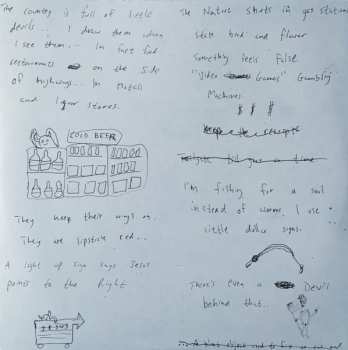 The country is full of little
devils... I draw them when
I see them... In fact food
restaurants on the side
of highways... In Motels
and liquor stores.
COLD BEER
They keep their wings on..
They are lipstick red...
A light up sign says Jesus
points to the Right
The Nature starts in gas stations
State bird and flower
Something feels False
"Video Games" Gambling
Machines
$ $ $
I'm fishing for a soul
instead of worms, I use
little dollar signs.
There's even a Devil
behind that...